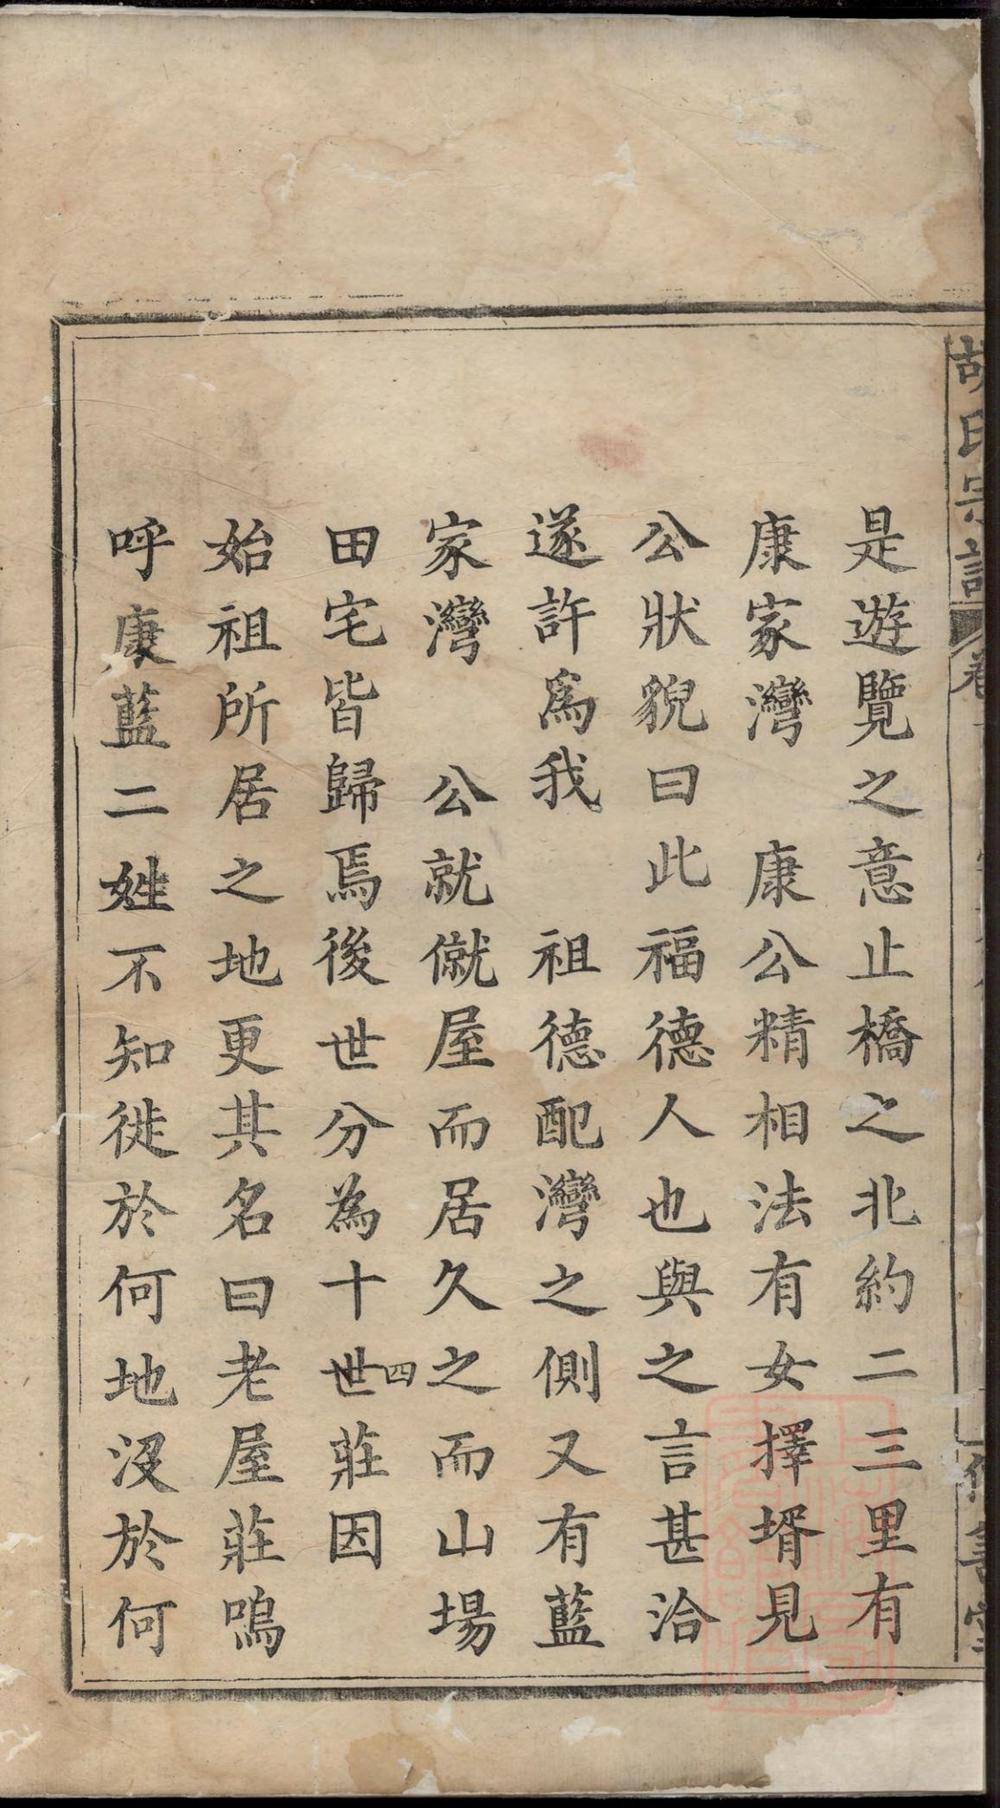 胡氏宗譜
卷
是遊覽之意止橋之北約二三里有
康家灣　康公精相法有女擇壻見
公狀貌曰此福德人也與之言甚洽
遂許爲我　祖德配灣之側又有藍
家灣　公就僦屋而居久之而山場
田宅皆歸焉後世分為十四世莊因
始祖所居之地更其名曰老屋莊嗚
呼康藍二姓不知徙於何地沒於何